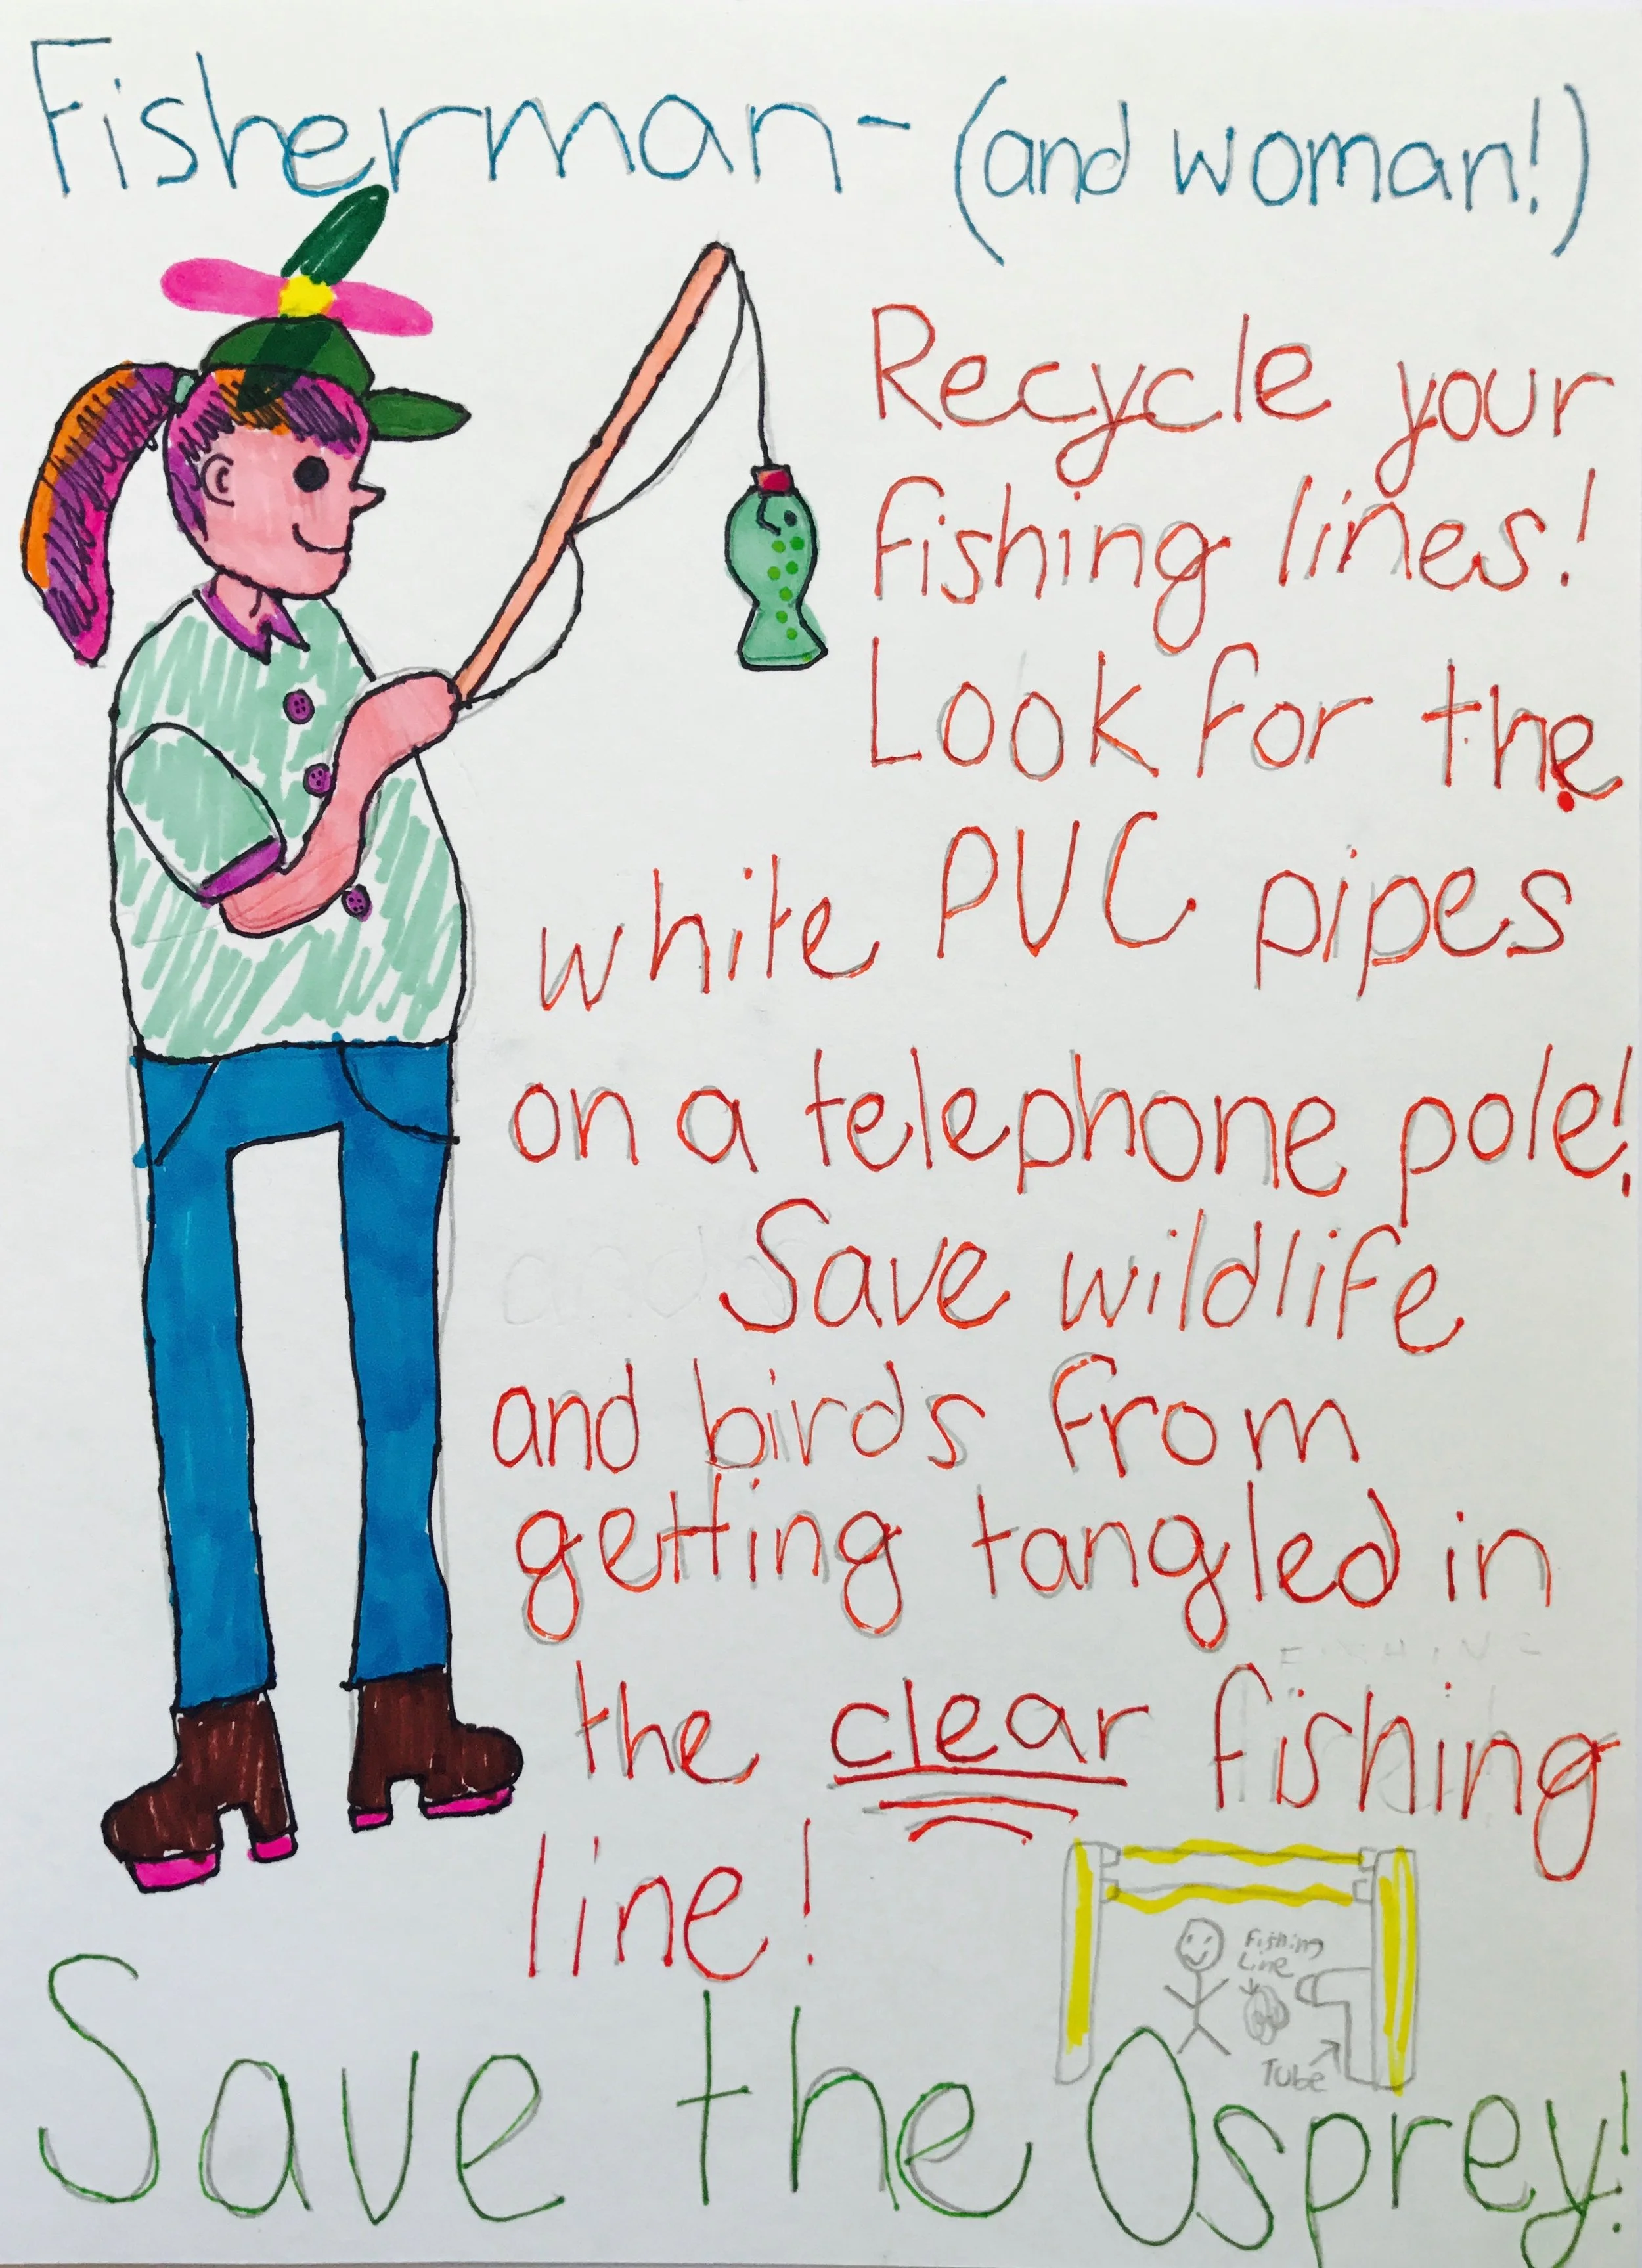 Fisherman- (and woman!)
Recycle your
fishing lines!
Look for the
white PVC pipes
on a telephone pole!
Save wildlife
and birds from
getting tangled in
the clear fishing
line!
Fishing
Line
Tube
Save the Osprey!